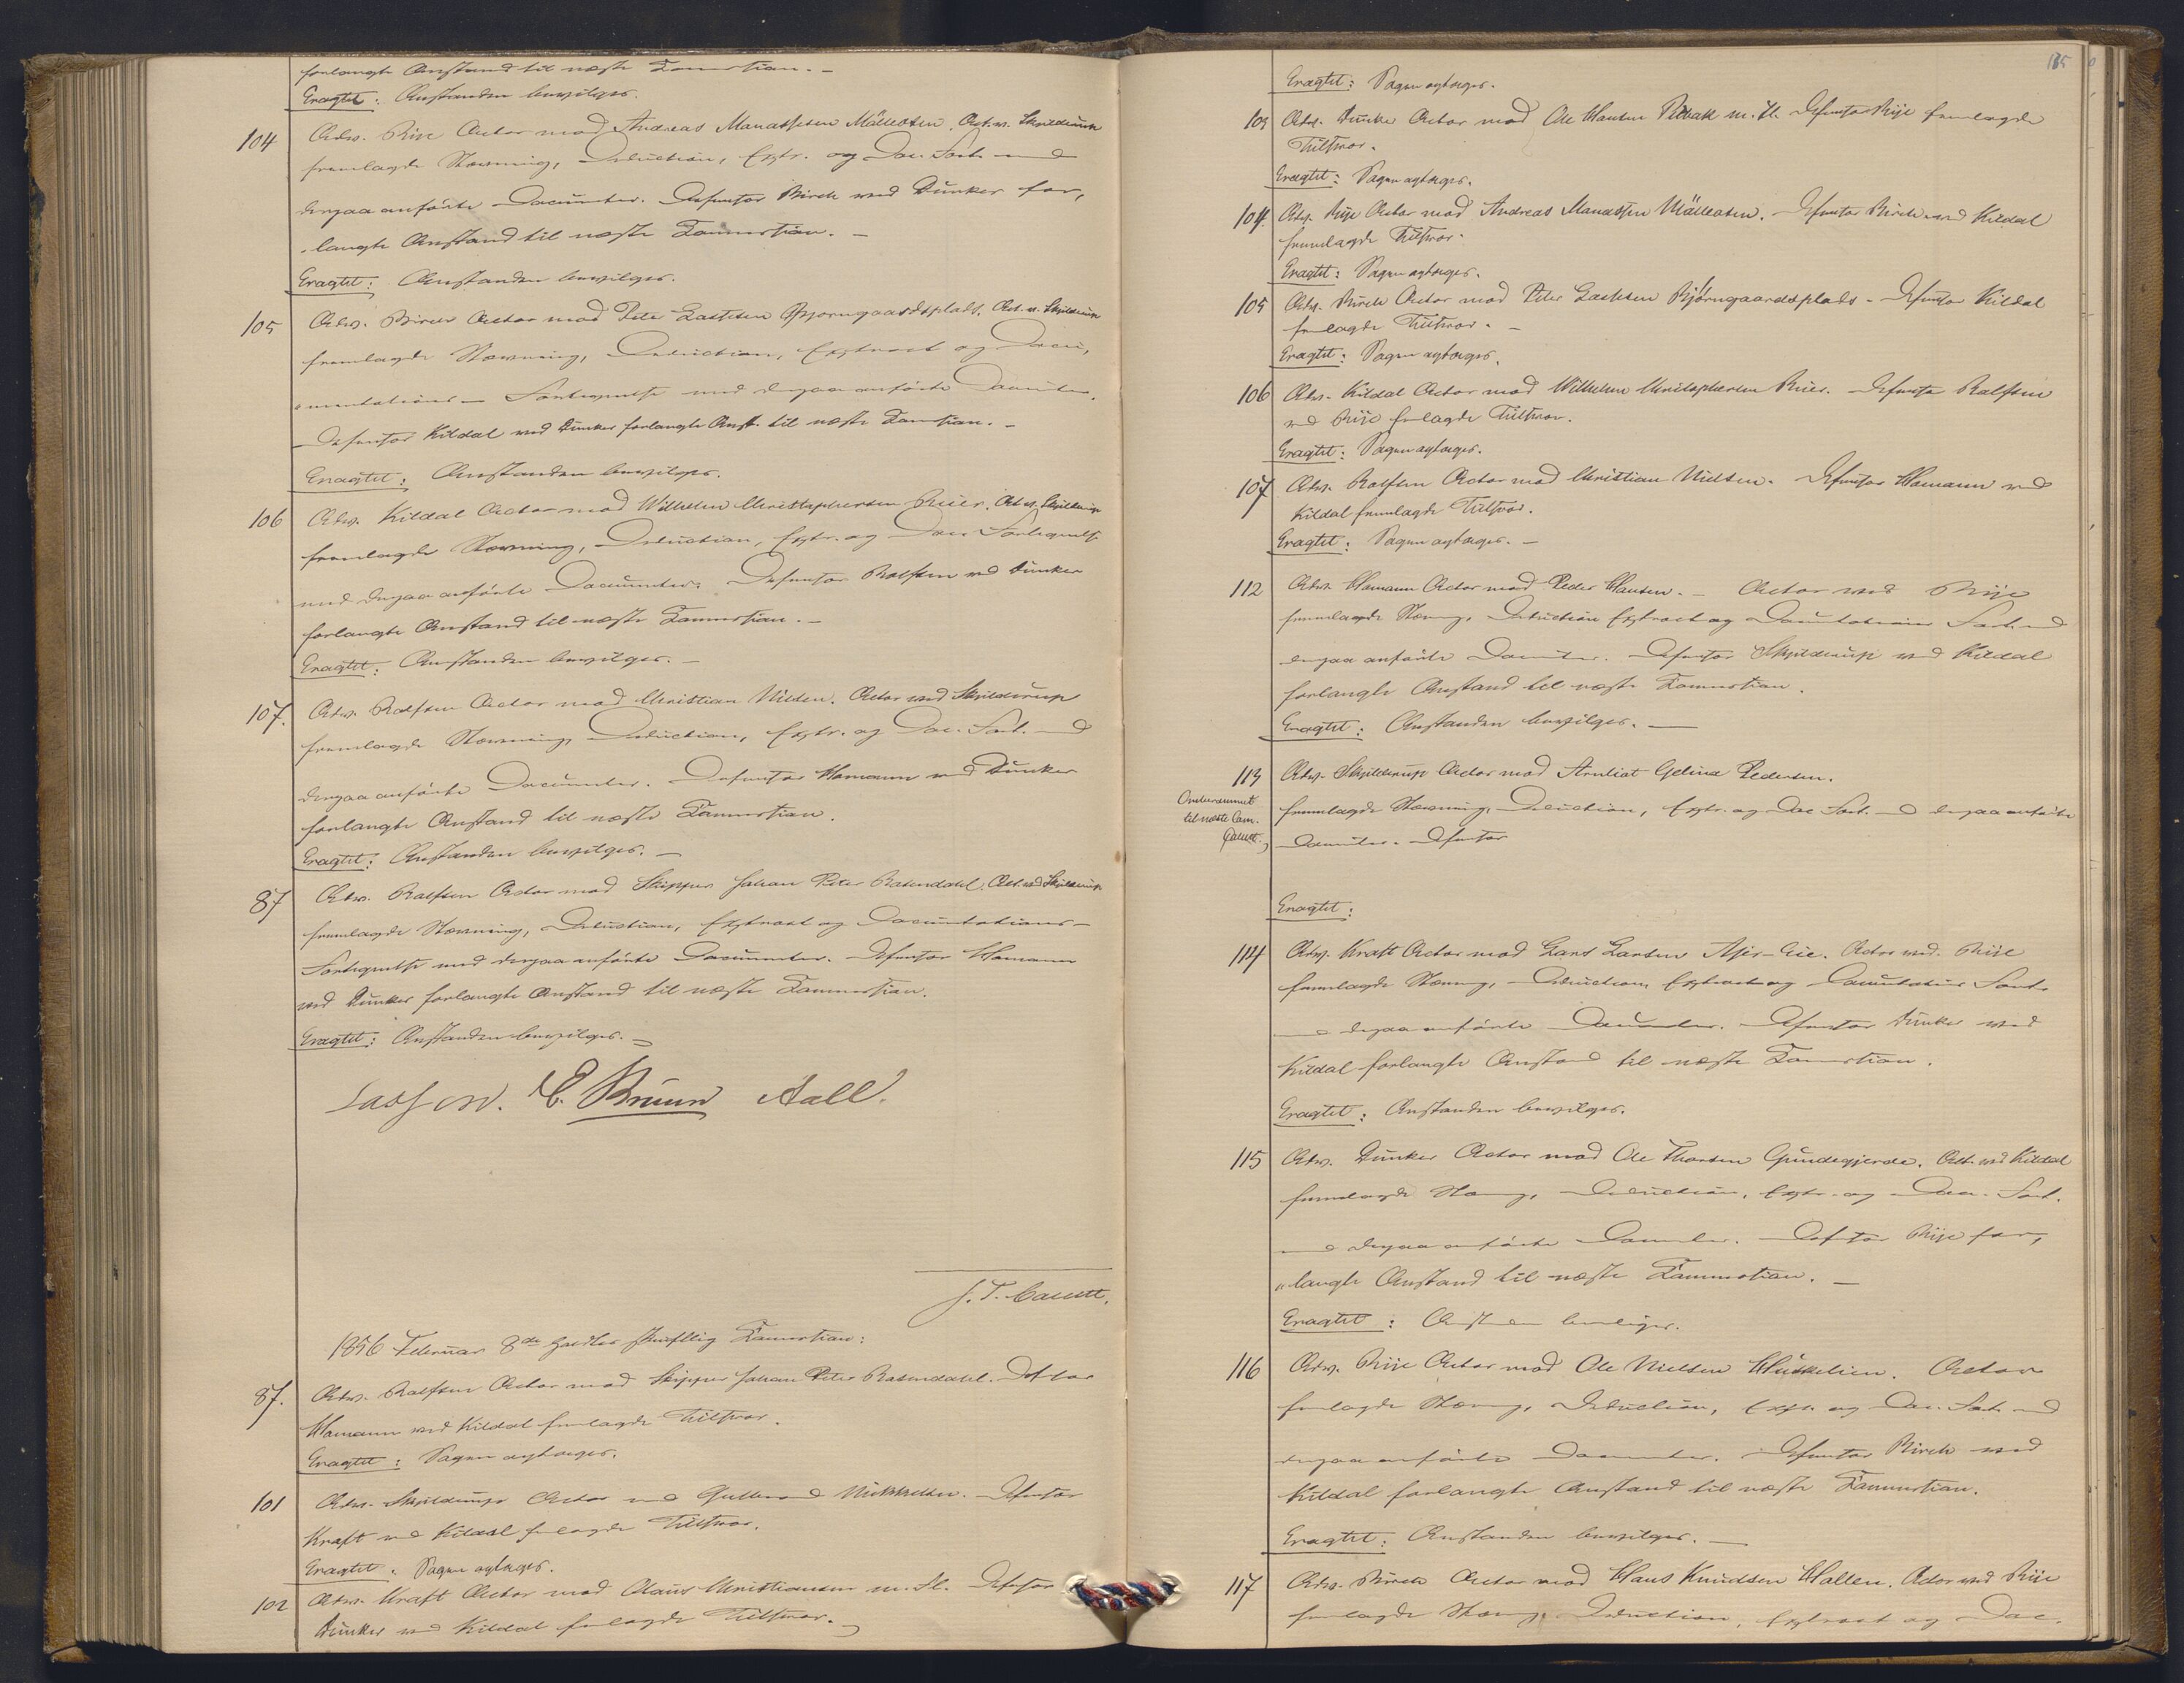 forlangte Anstand til næste Tamestian. –
Eragtet: Anstanden bevilges.
104 Adv. Rije Actor mod Andreas Manassesen Mälleosen. Act. v. Skjilderup
fremlagde Stævning, Deduction, Extr. og Doc. Fort. med
derpaa anførte Documenter. Defensor Birch ved Dunker for,
„langte Anstand til næste Tamestian. –
Eragtet: Anstanden bevilges.
105 Adv. Birch Actor mod Peter Larsen Bjørngaardsplads. Act. v. Skjilderup
fremlagde Stævning, Deduction, Extract og Docu,
„mentations – Fortegnelse med derpaa anførte Documenter.
Defensor Kildal ved Dunker forlangte Anst. til næste Tamestian. –
Eragtet: Anstanden bevilges.
106 Adv. Kildal Actor mod Wilhelm Christophersen Ruer. Act. v. Skjilderup
fremlagde Stævning, Deduction, Extr. og Doc. Fortegnelse
med derpaa anførte Documenter. Defensor Rolfsen ved Dunker
forlangte Anstand til næste Tamestian. –
Eragtet: Anstanden bevilges. –
107. Adv. Rolfsen Actor mod Christian Nielsen. Actor ved Skjilderup
fremlagde Stævning, Deduction, Extr. og Doc. Fort. med
derpaa anførte Documenter. Defensor Homann ved Dunker
forlangte Anstand til næste Tamestian.
Eragtet: Anstanden bevilges. –
87 Adv. Rolfsen Actor mod Skipper Johan Peter Rosendahl. Act. ved Skjilderup
fremlagde Stævning, Deduction, Extract og Documentations –
Fortegnelse med derpaa anførte Documenter. Defensor Homann
ved Dunker forlangte Anstand til næste Tamestian.
Eragtet: Anstanden bevilges. –
Lasson. E. Bruun Aall.
1856 Februar 8de holdtes skriftlig Tamestian:
87. Adv. Rolfsen Actor mod Skipper Johan Peter Rosendahl. Defensor
Homann ved Kildal fremlagde Tilsvar.
Eragtet: Sagen optages.
101 Adv. Skjilderup Actor mod Gulbrand Mikkelsen. Defensor
Kraft ved Kildal fremlagde Tilsvar.
Eragtet: Sagen optages.
102 Adv. Kraft Actor mod Olaus Christiansen m. Fl. Defensor
Dunker ved Kildal fremlagde Tilsvar.
Eragtet: Sagen optages.
103 Adv. Dunker Actor mod Ole Hansen m. Fl. Defensor Rije fremlagde
Tilsvar.
Eragtet: Sagen optages.
104. Adv. Rije Actor mod Andreas Manassesen Mälleosen. Defensor Birch ved Kildal
fremlagde Tilsvar.
Eragtet: Sagen optages.
105 Adv. Birch Actor mod Peter Larsen Bjørngaardsplads – Defensor Kildal
fremlagde Tilsvar. –
Eragtet: Sagen optages.
106 Adv. Kildal Actor mod Wilhelm Christophersen Ruer. Defensor Rolfsen
ved Rije fremlagde Tilsvar.
Eragtet: Sagen optages.
107 Adv. Rolfsen Actor mod Christian Nielsen. Defensor Homann ved
Kildal fremlagde Tilsvar.
Eragtet: Sagen optages. –
112 Adv. Homann Actor mod Peder Hansen. – Actor ved Riije
fremlagde Stævning, Deduction Extract og Documentations Fort. med
derpaa anførte Documenter. Defensor Skjilderup ved Kildal
forlangte Anstand til næste Tamestian.
Eragtet: Anstanden bevilges. –
113 Adv. Skjilderup Actor mod Arnliot Gelina Pedersen.
til næste
fremlagde Stævning, Deduction, Extr. og Doc. Fort. med derpaa anførte
Documenter. Defensor
Eragtet:
114 Adv. Kraft Actor mod Lars Larsen Asjer-Eie. Actor ved Riije
fremlagde Stævning, Deduction, Extract og Documentations Fort.
med derpaa anførte Documenter. Defensor Dunker ved
Kildal forlangte Anstand til næste Tamestian.
Eragtet: Anstanden bevilges.
115 Adv. Dunker Actor mod Ole Thorsen Gundegjerde. Act. ved Kildal
fremlagde Stævning, Deduction, Extr. og Doc. Fort.
med derpaa anførte Documenter. Defensor Riije for,
„langte Anstand til næste Tamestian. –
Eragtet: Anstanden bevilges.
116 Adv. Riije Actor mod Ole Nielsen Huskelien. Actor
fremlagde Stævning, Deduction, Extr. og Doc. Fort. med
derpaa anførte Documenter. Defensor Birch ved
Kildal forlangte Anstand til næste Tamestian.
Eragtet: Anstanden bevilges. –
117 Adv. Birch Actor mod Hans Knudsen Hallen. Actor ved Riije
fremlagde Stævning, Deduction, Extract og Doc.